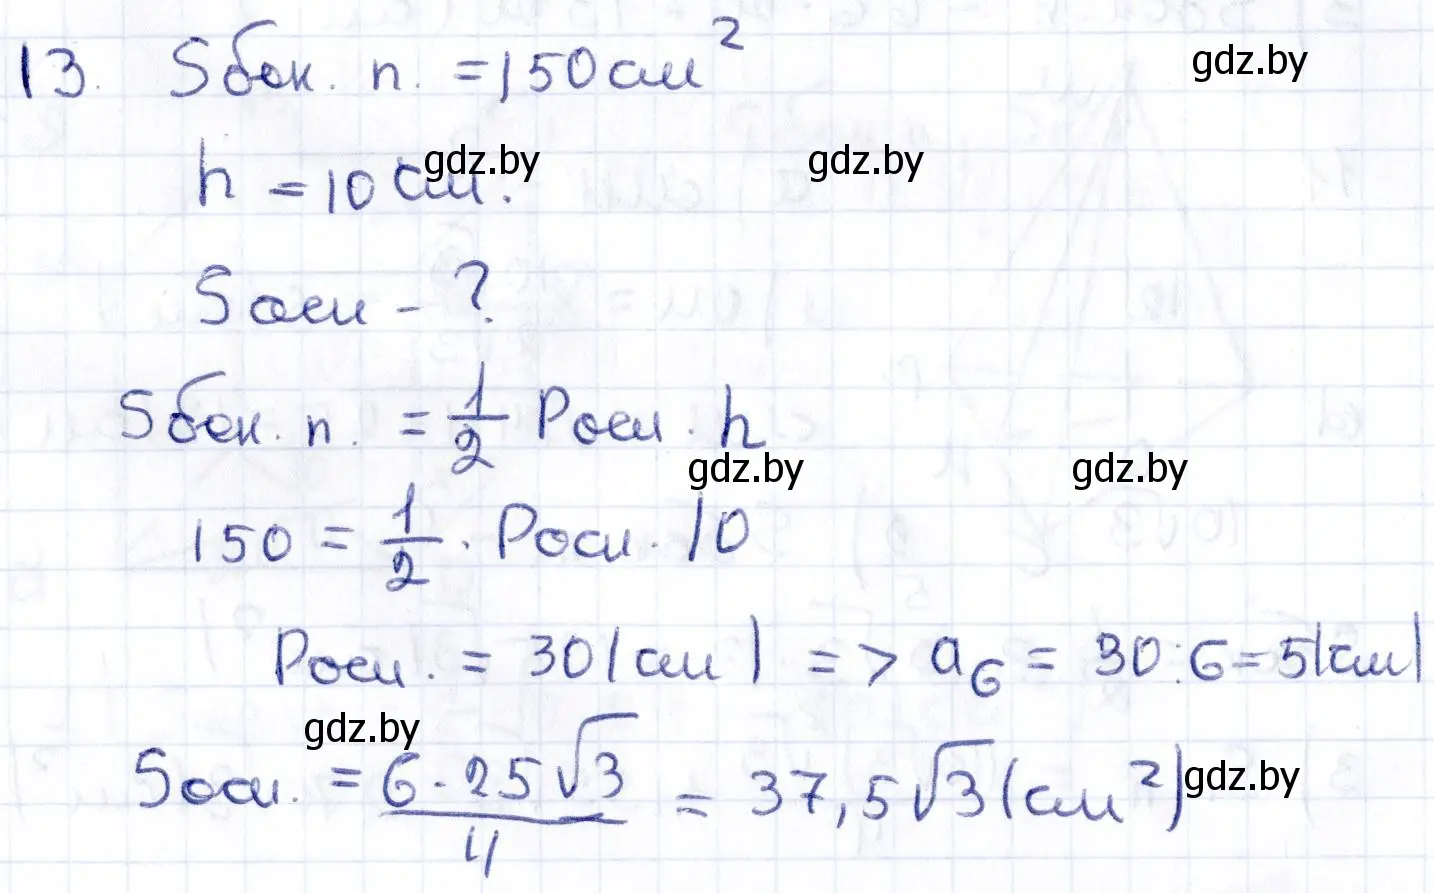 13. Sбок. п. = 150 см²
gdz.by
h = 10 см.
gdz.by
gdz.by
Sосн - ?
Sбок. п. = 1/2 Pосн · h
gdz.by
gdz.by
150 = 1/2 · Pосн. · 10
Pосн. = 30 (см) => a₆ = 30 : 6 = 5 (см)
gdz.by
Sосн. = 6 · 25√3 / 4 = 37,5√3 (см²)
gdz.by